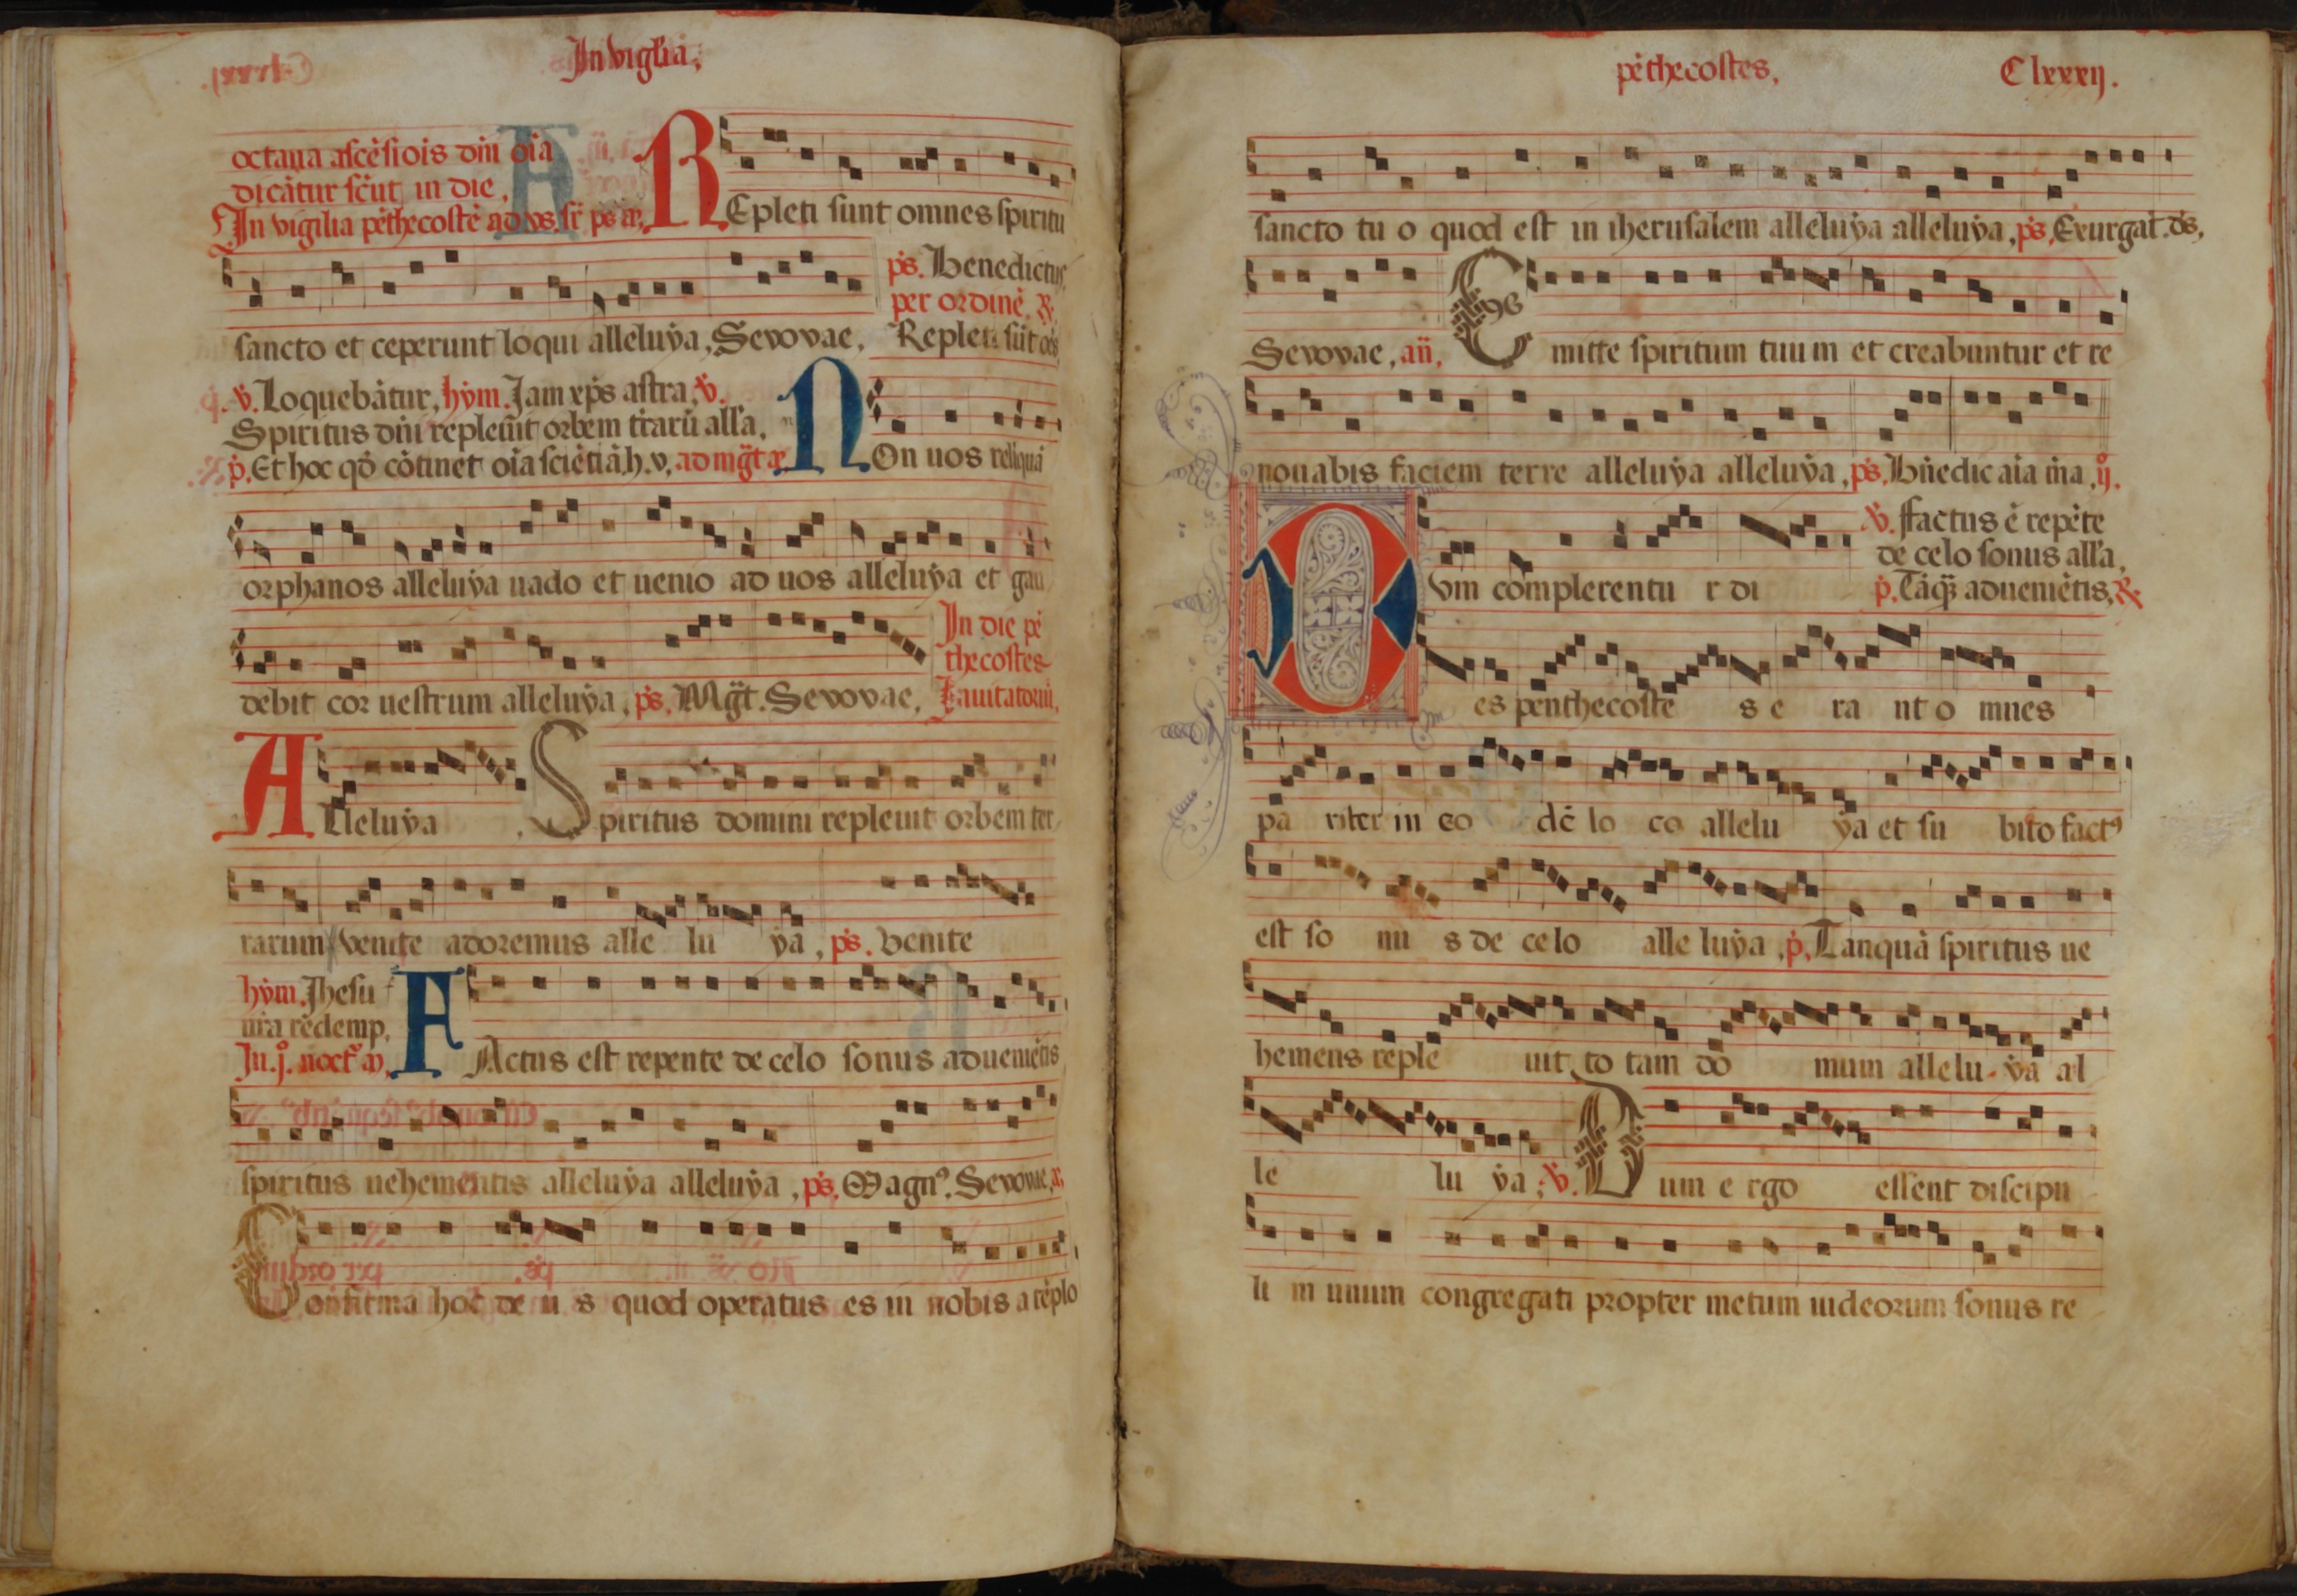 In vigl'ia,
octaua ascēsiois dn̄i oīa
dicātur sc̄ut in die,
In vigilia pēthecostē ad vs. sr̄ ps ā.
REpleti sunt omnes spiritu
ps. Benedictus
per ordinē. ℟.
sancto et ceperunt loqui alleluya, Seuouae, Repleti sūt oēs
℣. Loquebātur, hym. Jam xp̄s astra, ℣.
Spiritus dn̄i repleuit orbem t̄rarū all'a,
p. Et hoc qd̄ cōtinet oīa sciētiā h. v, ad mgt ā.
NOn uos reliquā
orphanos alleluya uado et uenio ad uos alleluya et gau
In die pē
thecostes
debit cor uestrum alleluya, ps. Mgt. Seuouae, Inuitatoriū,
Alleluya, Spiritus domini repleuit orbem ter
rarum venite adoremus alle lu ya, ps. Venite
hym. Jhesu
nr̄a redemp,
In. j. noct' ā,
FActus est repente de celo sonus adueniētis
spiritus uehementis alleluya alleluya, ps. Magn9. Seuouae, ā,
Confirma hoc de u s quod operatus es in nobis a tēplo
pēthecostes,
C lxxxij.
sancto tu o quod est in iherusalem alleluya alleluya, ps, Exurgat. ds,
Seuouae, an̄, Emitte spiritum tuum et creabuntur et re
nouabis faciem terre alleluya alleluya, ps. Bn̄edic aīa m̄a, ij.
℣. ffactus ē repēte
de celo sonus all'a,
Dvm complerentu r di
p. Tāq̄ adueniētis, ℟
es penthecoste s e ra nt o mnes
pa riter in eo dē lo co allelu ya et su bito fact9
est so nu s de celo alle luya, p, Tanquā spiritus ue
hemens reple uit to tam do mum allelu- ya al
le lu ya; ℣. Dum e rgo essent discipu
li in unum congregati propter metum iudeorum sonus re